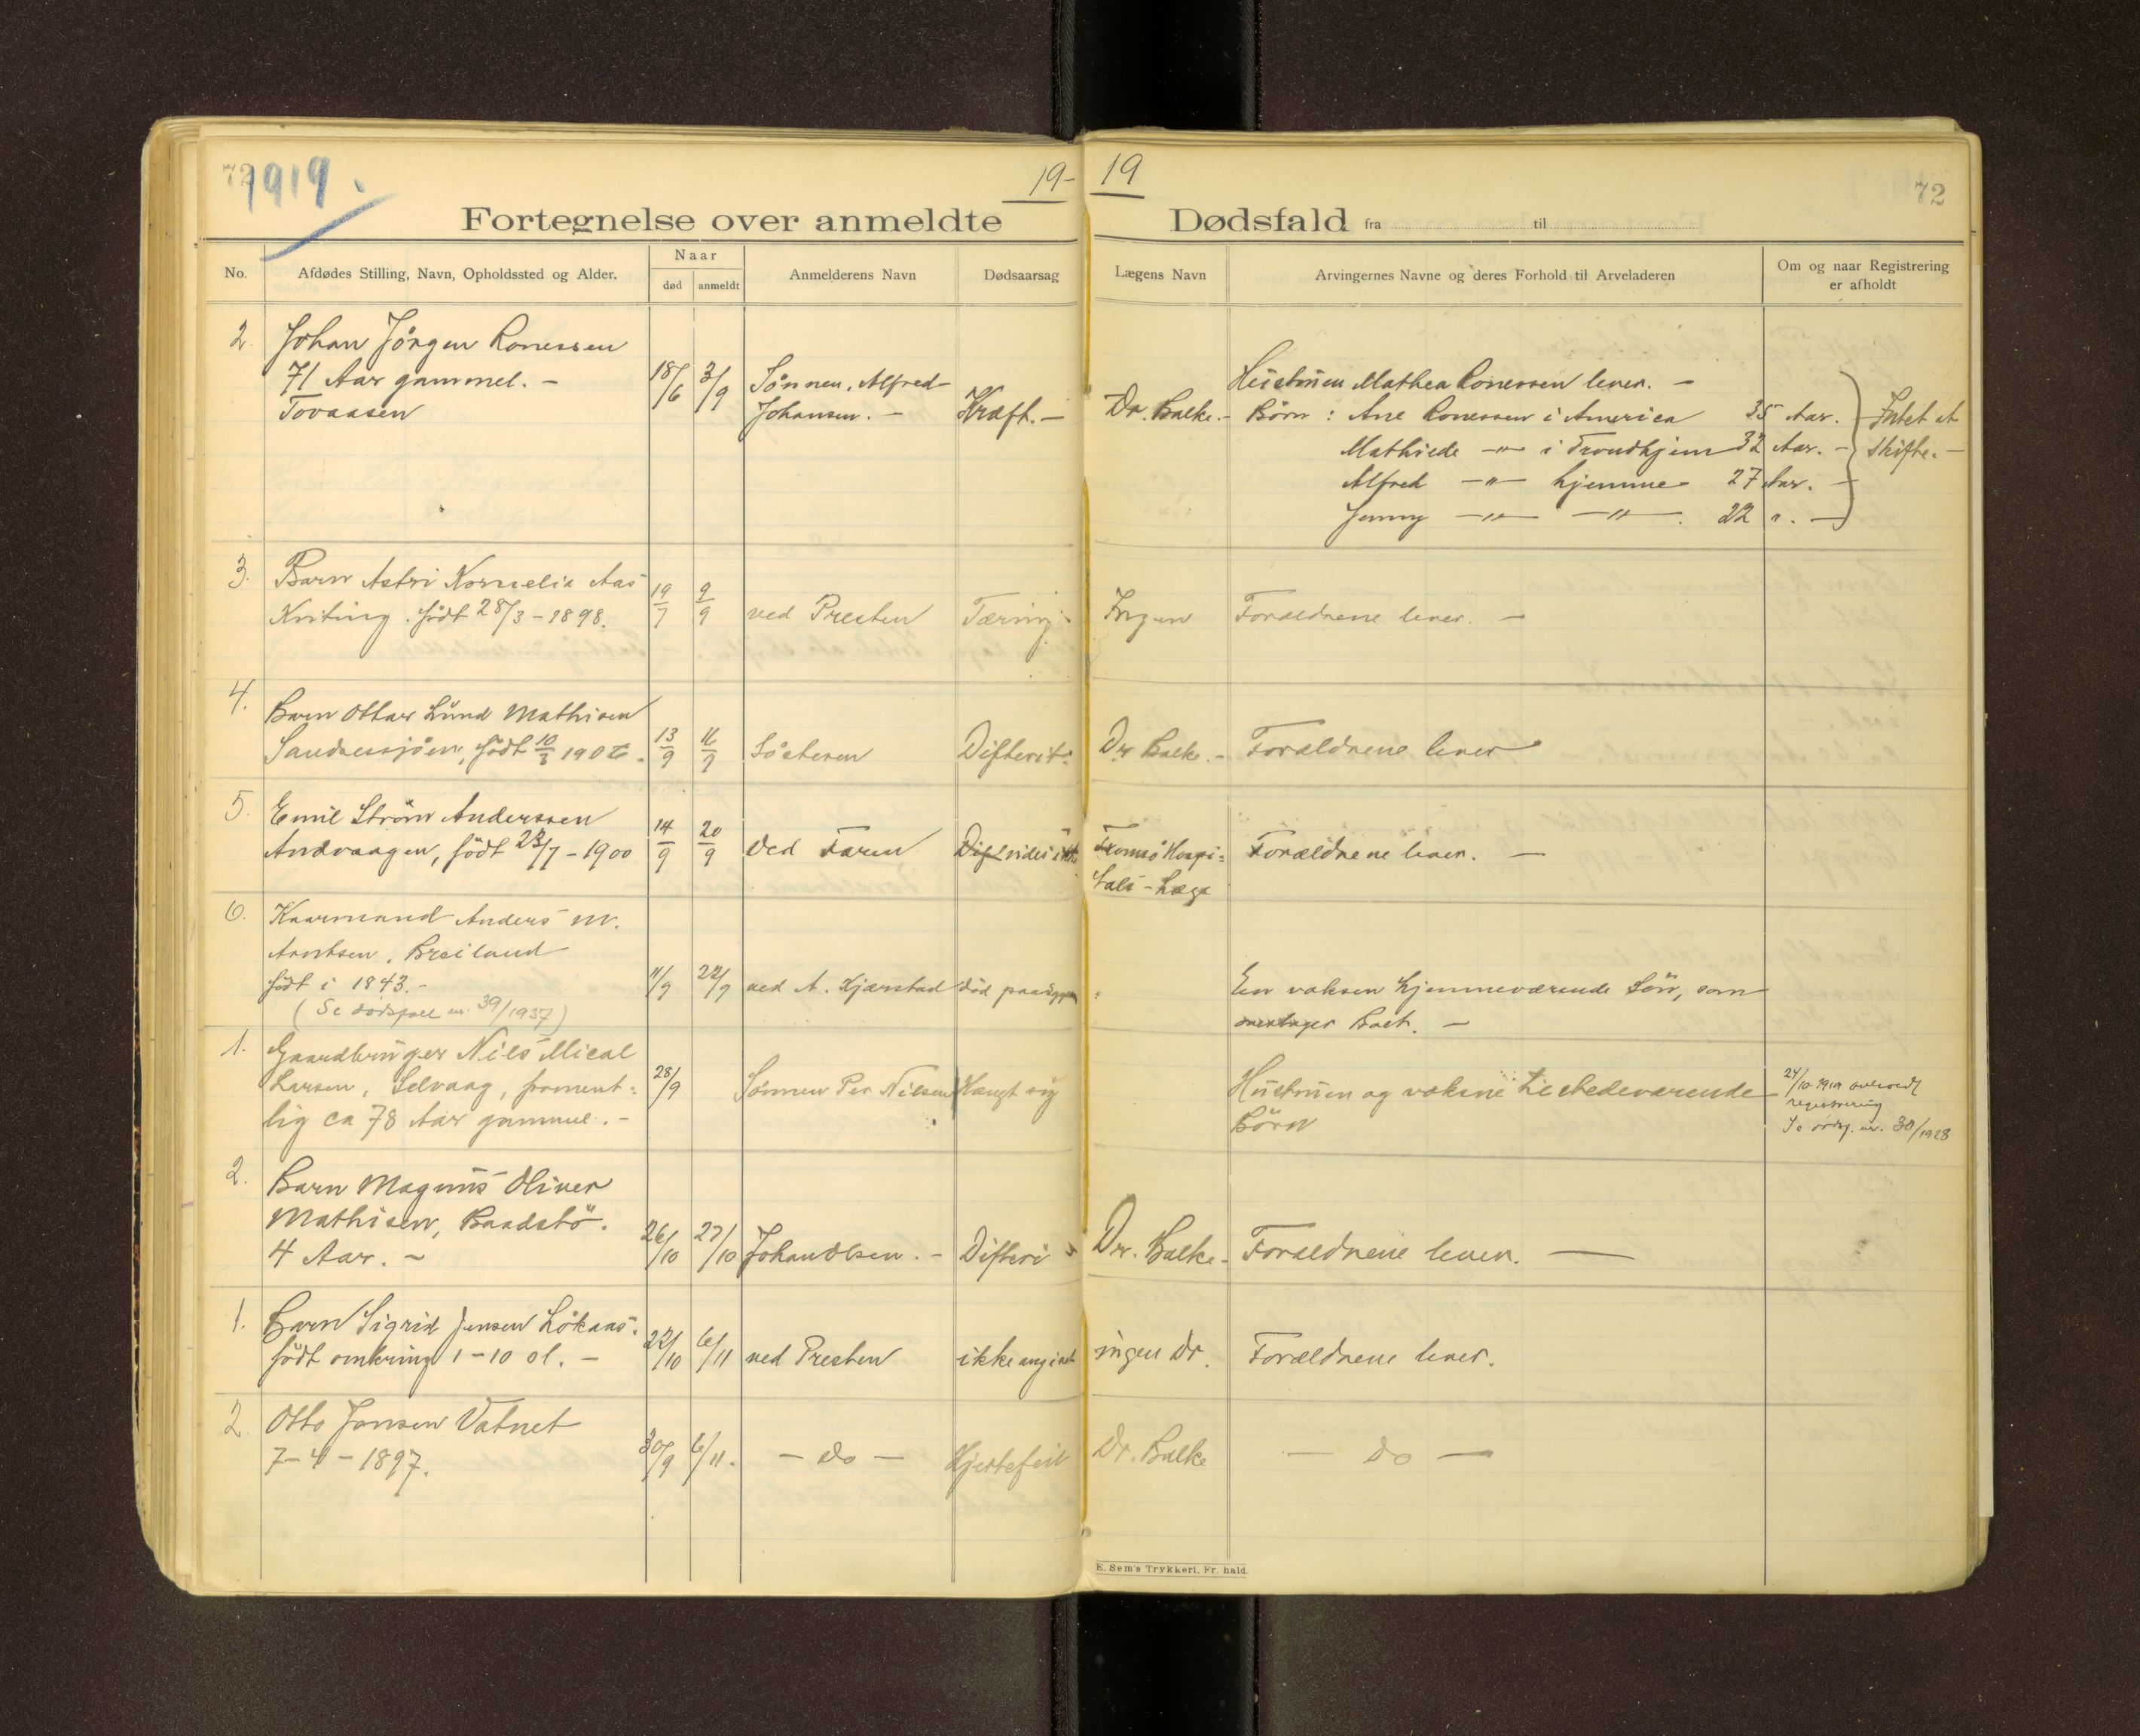 72
1919.
19-
19
72
Fortegnelse over anmeldte
Dødsfald fra til
No.
Afdødes Stilling, Navn, Opholdssted og Alder.
Naar
død
anmeldt
Anmelderens Navn
Dødsaarsag
Lægens Navn
Arvingernes Navne og deres Forhold til Arveladeren
Om og naar Registrering
er afholdt
2. Johan Jörgen Ronessen
71 Aar gammel. -
Tovaasen
18/6 3/9 Sönnen, Alfred
Johansen. - Kræft. -
Dr. Balke. -
Hustruen Mathea Ronessen lever. -
Börn: Ane Ronessen i America 35 Aar.
Mathiede -"- i Trondhjem 32 Aar. -
Alfred -"- hjemme 27 Aar. -
Jenny -"- -"- . 22 ". -
Intet at
skifte. -
3. Barn Astri Kornelia Aas
födt 28/3 - 1898.
19/7 9/9 ved Presten Tæring
Ingen Forældrene lever. -
4. Barn Ottar Lund Mathisen
Sandnessjöen, födt
13/9 16/9 Sösteren Difterit
Dr Balke. - Forældrene lever
5. Emil Ström Anderssen
Andvaagen, födt 23/7 - 1900
14/9 20/9 ved Faren
Tromsö Hospi=
tals - Læge
Forældrene lever. -
6. Kaarmand Anders M.
Arntsen, Breiland
födt i 1843. -
(Se dödsfall nr. 39/1937)
11/9 22/9 ved A. Kjærstad död paa
En voksen hjemmeværende Sön, som
overtager Boet. -
1. Gaardbruger Nils Mical
Larsen, Selvaag, forment=
lig ca 78 Aar gammel. -
28/9 Sönnen Per Nilsen Hængt sig
Hustruen og voksne tilstedeværende
Börn
24/10 1919 avholdt
registrering
Se dödsf. nr. 30/1928
2. Barn Magnus Oliver
Mathisen, Baadstö.
4 Aar. -
26/10 27/10 Johan Olsen. - Difteri
Dr. Balke - Forældrene lever. -
1. Barn Sigrid Jensen Lökaas.
födt omkring 1-10 d. -
22/10 6/11 ved Presten ikke angivet
ingen Dr. Forældrene lever.
2 Otto Jensen Vatnet
7-4-1897.
30/9 6/11. - do - Hjertefeil
Dr. Balke - do -
E. Sem's Trykkeri, Fr. hald.